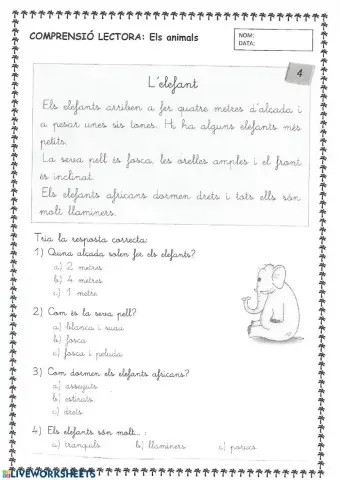 COMPRENSIÓ LECTORA: Els animals
NOM:
DATA:
4
L'elefant
Els elefants arriben a fer quatre metres d'alçada i
a pesar unes sis tones. Hi ha alguns elefants més
petits.
La seva pell és fosca, les orelles amples i el front
és inclinat.
Els elefants africans dormen drets i tots ells són
molt llaminers.
Tria la resposta correcta:
1) Quina alçada solen fer els elefants?
a) 2 metres
b) 4 metres
c) 1 metre
2) Com és la seva pell?
a) blanca i suau
b) fosca
c) fosca i peluda
3) Com dormen els elefants africans?
a) asseguts
b) estirats
c) drets
4) Els elefants són molt... :
a) tranquils b) llaminers c) porucs
LIVEWORKSHEETS